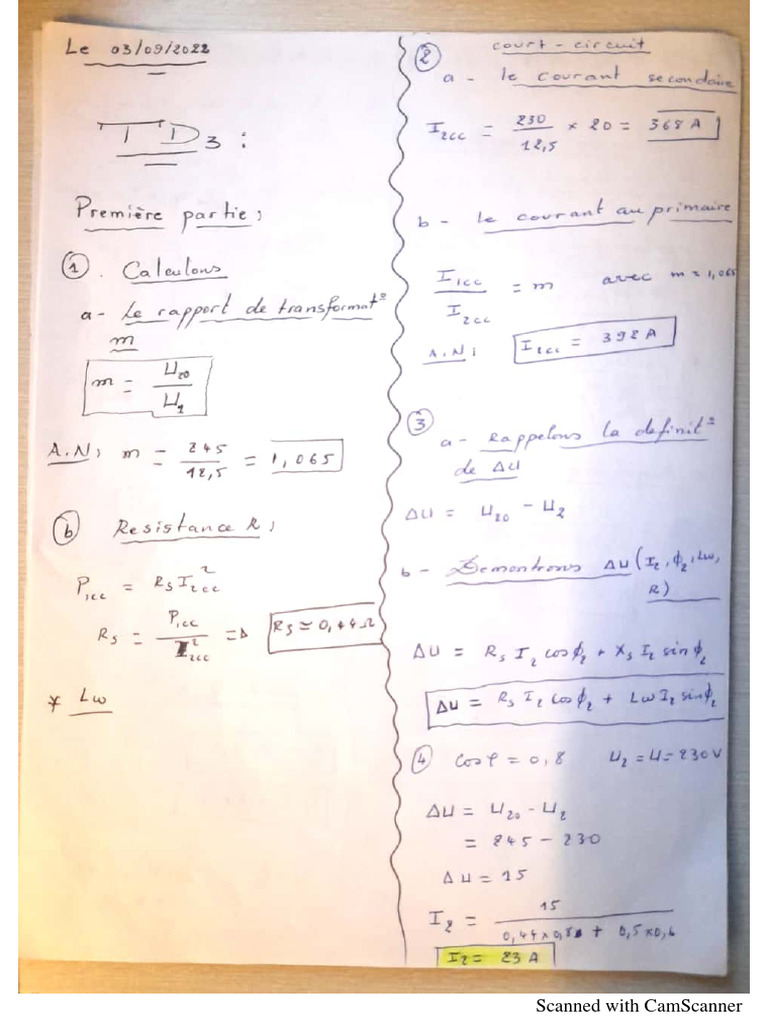 Le 03/09/2022
TD3 :
Première partie ;
① . Calculons
a - Le rapport de transformat°
m
m = U20 / U1
A.N ; m = 245 / 12,5 = 1,065
ⓑ Resistance R ;
P1cc = Rs I²2cc
Rs = P1cc / I²2cc => Rs ≃ 0,44 Ω
* Lω
② court - circuit
a - le courant secondaire
I2cc = 230 / 12,5 × 20 = 368 A
b - le courant au primaire
I1cc / I2cc = m avec m = 1,065
A.N ; I2cc = 392 A
③
a - Rappelons la definit°
de ΔU
ΔU = U20 - U2
b - Demontrons ΔU (I2, ϕ2, Lω,
R)
ΔU = Rs I2 cosϕ2 + Xs I2 sinϕ2
ΔU = Rs I2 cosϕ2 + Lω I2 sinϕ2
④ cosφ = 0,8 U2 = U = 230 V
ΔU = U20 - U2
= 245 - 230
ΔU = 15
I2 = 15 / 0,44×0,8 + 0,5×0,6
I2 = 23 A
Scanned with CamScanner